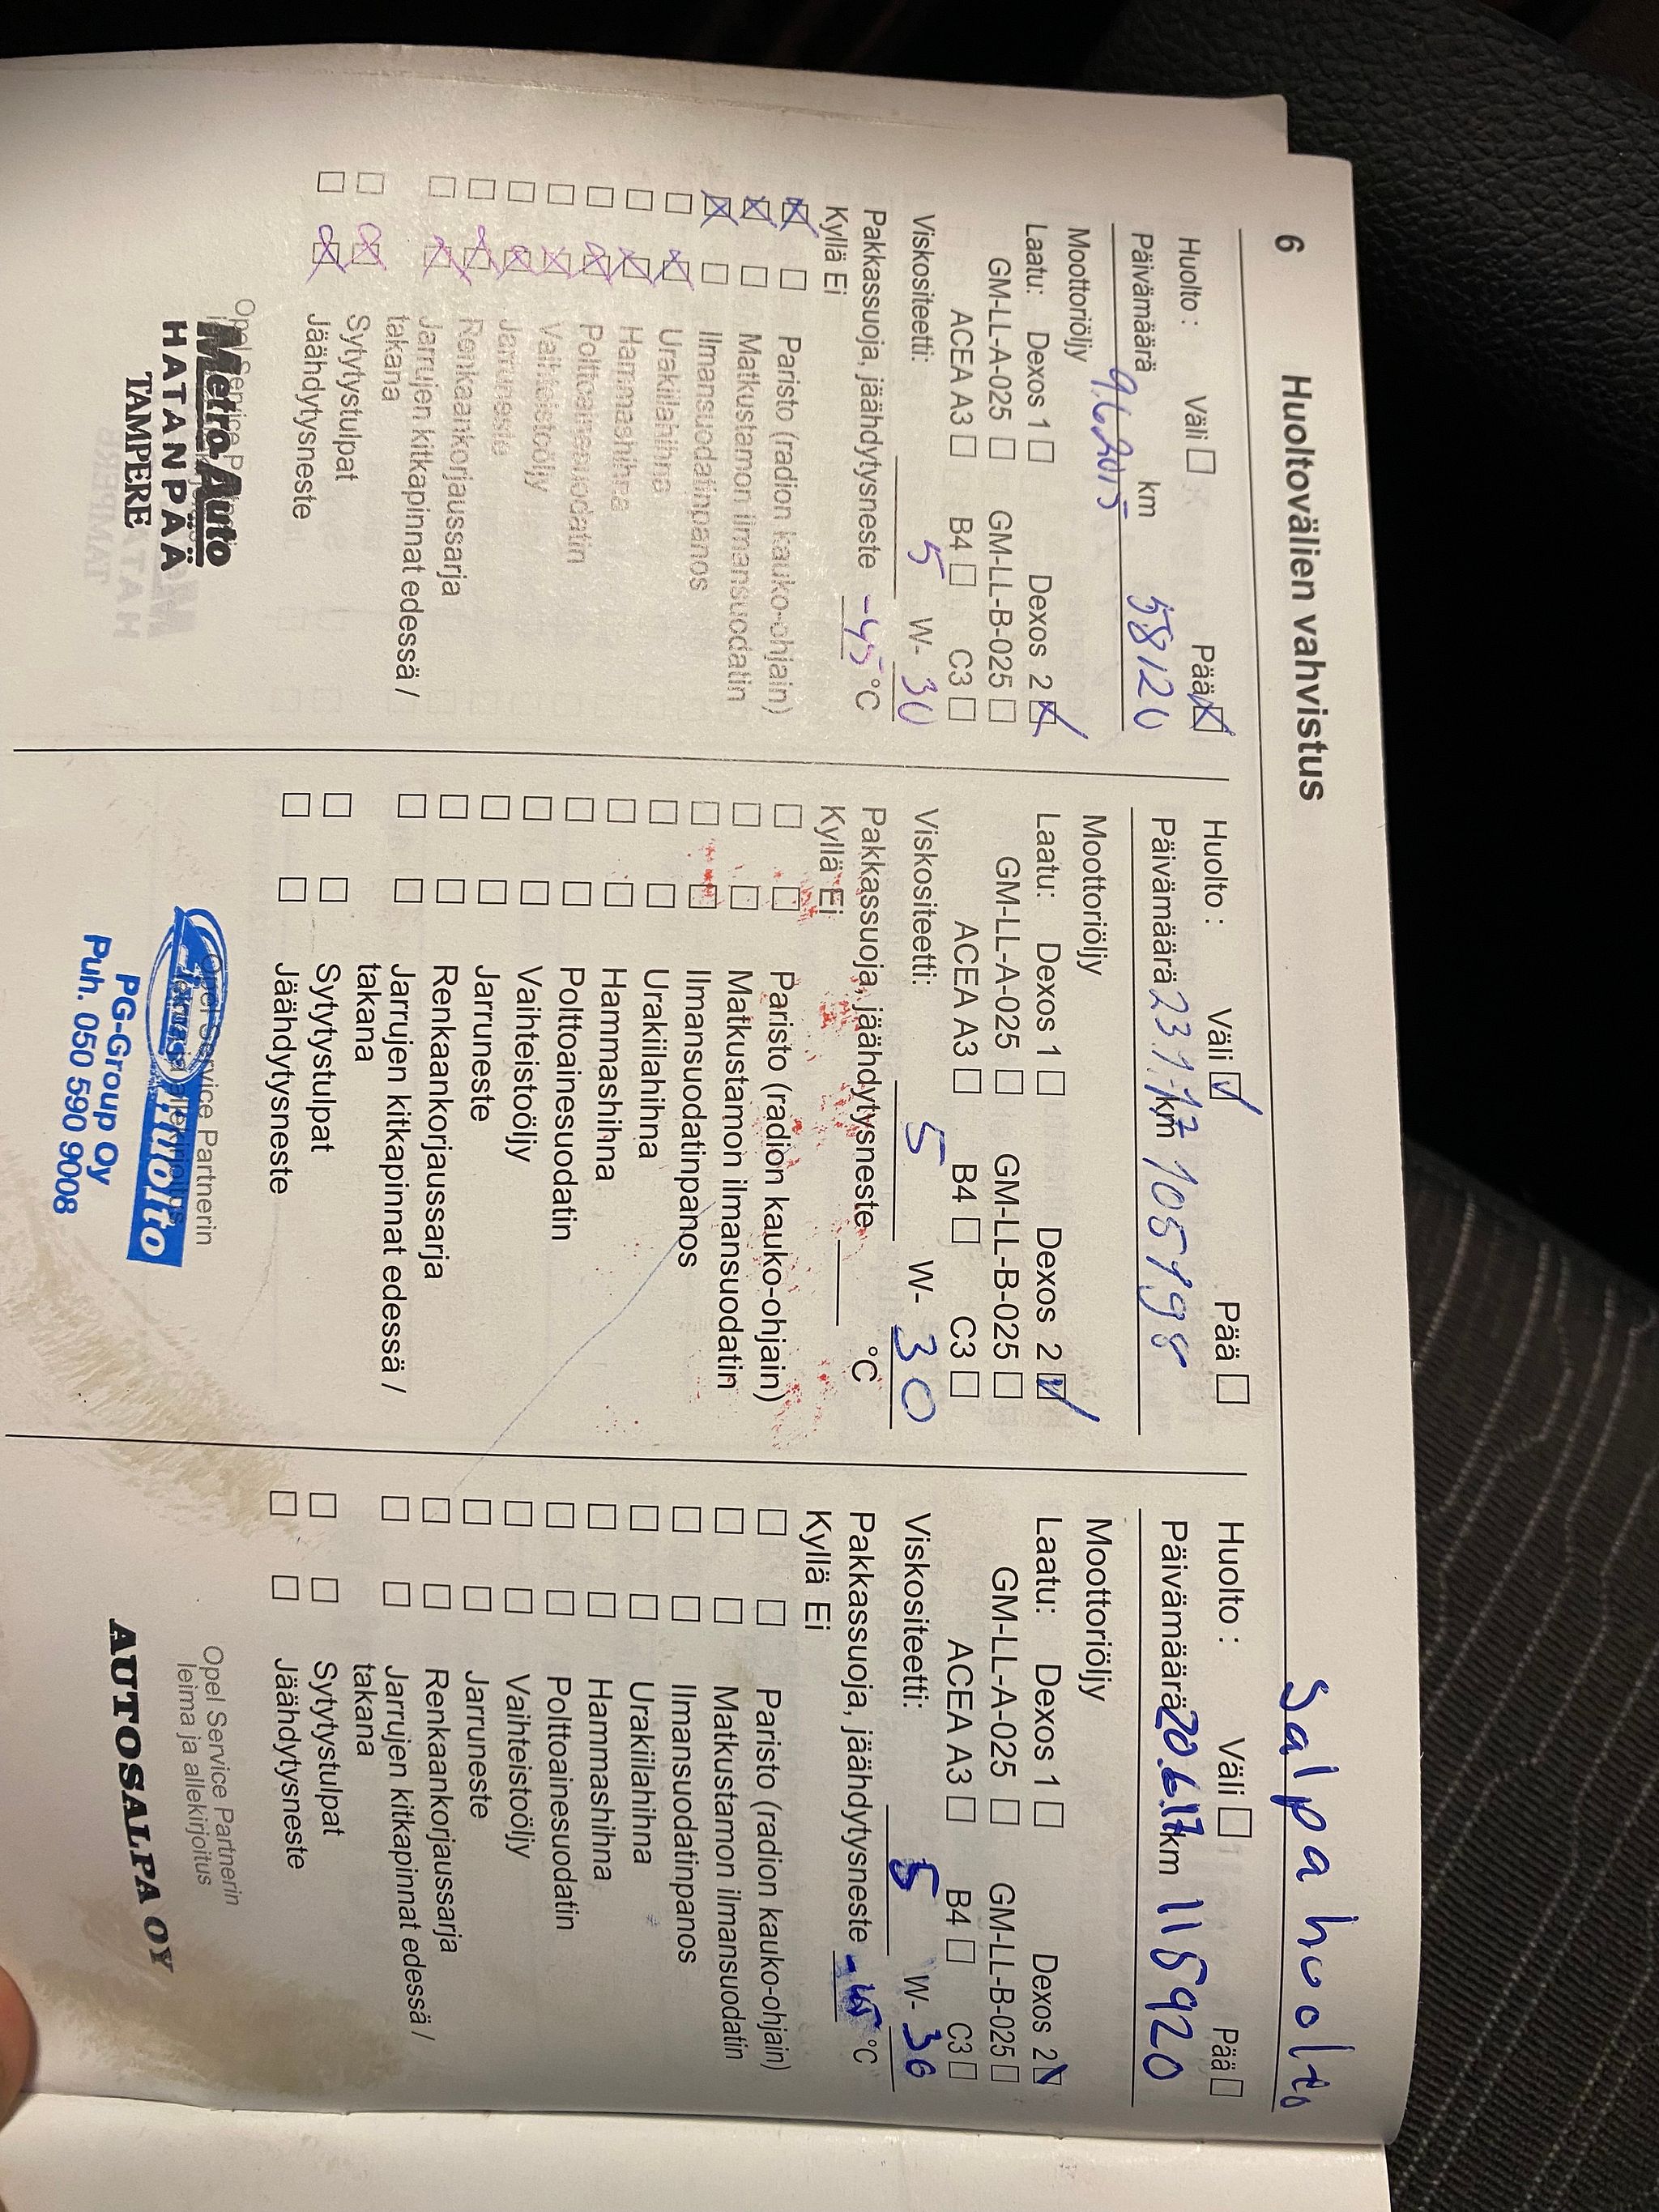 6 Huoltovälien vahvistus
Huolto: Väli Pää
Päivämäärä km
9.6.2015 58120
Moottoriöljy
Laatu: Dexos 1 Dexos 2
GM-LL-A-025 GM-LL-B-025
ACEA A3 B4 C3
Viskositeetti: 5 W- 30
Pakkassuoja, jäähdytysneste -45 °C
Kyllä Ei
Paristo (radion kauko-ohjain)
Matkustamon ilmansuodatin
Ilmansuodatinpanos
Urakiilahihna
Hammashihna
Polttoainesuodatin
Vaihteistoöljy
Jarruneste
Renkaankorjaussarja
Jarrujen kitkapinnat edessä /
takana
Sytytystulpat
Jäähdytysneste
Metro Auto
HATANPÄÄ
TAMPERE
Huolto: Väli Pää
Päivämäärä 23.1.17 km 105198
Moottoriöljy
Laatu: Dexos 1 Dexos 2
GM-LL-A-025 GM-LL-B-025
ACEA A3 B4 C3
Viskositeetti: 5 W- 30
Pakkassuoja, jäähdytysneste °C
Kyllä Ei
Paristo (radion kauko-ohjain)
Matkustamon ilmansuodatin
Ilmansuodatinpanos
Urakiilahihna
Hammashihna
Polttoainesuodatin
Vaihteistoöljy
Jarruneste
Renkaankorjaussarja
Jarrujen kitkapinnat edessä /
takana
Sytytystulpat
Jäähdytysneste
Opel Service Partnerin
Huolto
PG-Group Oy
Puh. 050 590 9008
Salpahuolto
Huolto: Väli Pää
Päivämäärä 20.6.17 km 115920
Moottoriöljy
Laatu: Dexos 1 Dexos 2
GM-LL-A-025 GM-LL-B-025
ACEA A3 B4 C3
Viskositeetti: 5 W- 30
Pakkassuoja, jäähdytysneste -45 °C
Kyllä Ei
Paristo (radion kauko-ohjain)
Matkustamon ilmansuodatin
Ilmansuodatinpanos
Urakiilahihna
Hammashihna
Polttoainesuodatin
Vaihteistoöljy
Jarruneste
Renkaankorjaussarja
Jarrujen kitkapinnat edessä /
takana
Sytytystulpat
Jäähdytysneste
Opel Service Partnerin
leima ja allekirjoitus
AUTOSALPA OY